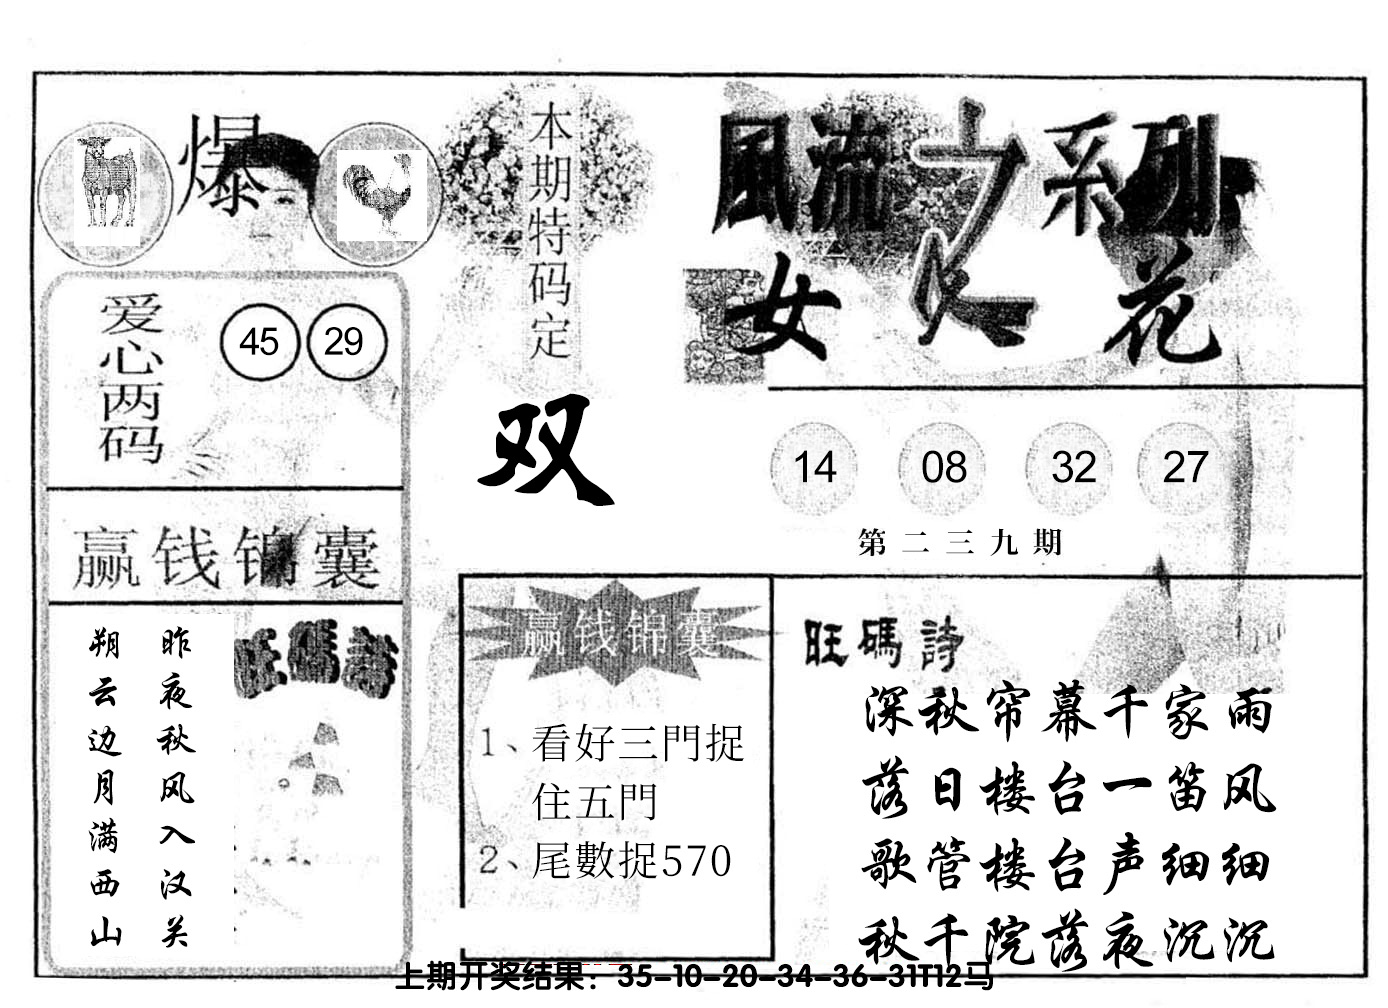 爆
本期特码定
双
風流之系列
女人花
爱心两码
45 29
14 08 32 27
第二三九期
赢钱锦囊
昨夜秋风入汉关
朔云边月满西山
旺碼詩
赢钱锦囊
1、看好三門捉
住五門
2、尾數捉570
旺碼詩
深秋帘幕千家雨
落日楼台一笛风
歌管楼台声细细
秋千院落夜沉沉
上期开奖结果：35-10-20-34-36-31T12马